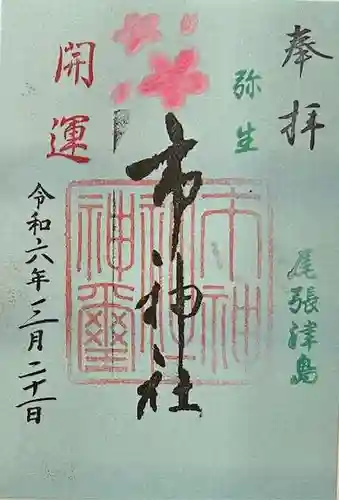 奉拝
弥生
尾張津島
市神社
市神神社神璽
開運
令和六年三月二十一日